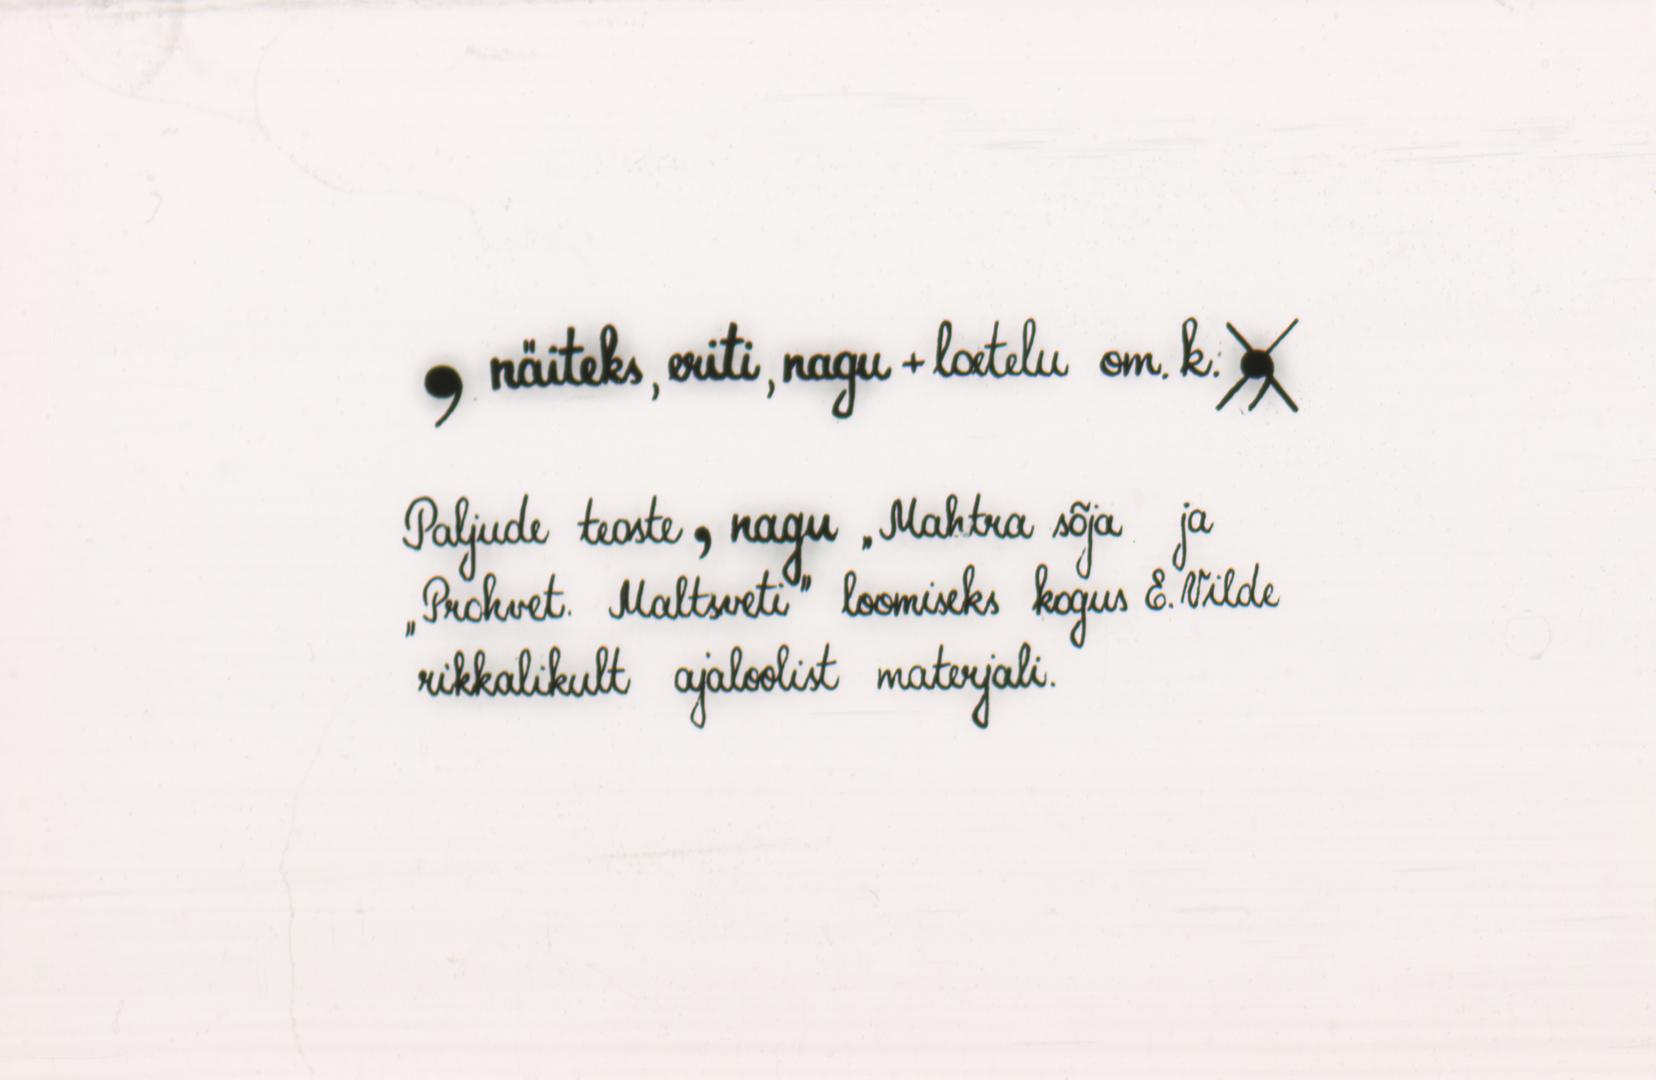 , näiteks, eriti, nagu + loetelu om. k. ,
Paljude teoste, nagu „Mahtra sõja ja
„Prohvet. Maltsveti” loomiseks kogus E. Vilde
rikkalikult ajaloolist materjali.